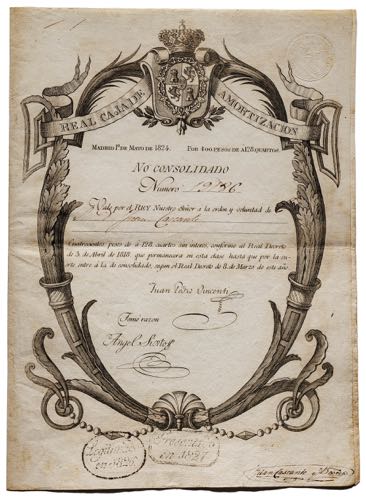 REAL CAJA DE AMORTIZACION
MADRID 1º DE MAYO DE 1824. POR 400 PESOS DE A 128 QUARTOS.
NO CONSOLIDADO
Numero
Vale por el REY Nuestro Señor a la orden y voluntad de
Quatrocientos pesos de á 128 cuartos sin interes, conforme al Real Decreto
de 3 de Abril de 1818, que permanecera en esta clase hasta que por la su-
erte entre á la de consolidado, segun el Real Decreto de 8 de Marzo de este año
Juan Pedro Vincenti
Tomé razon
Angel
en 1827